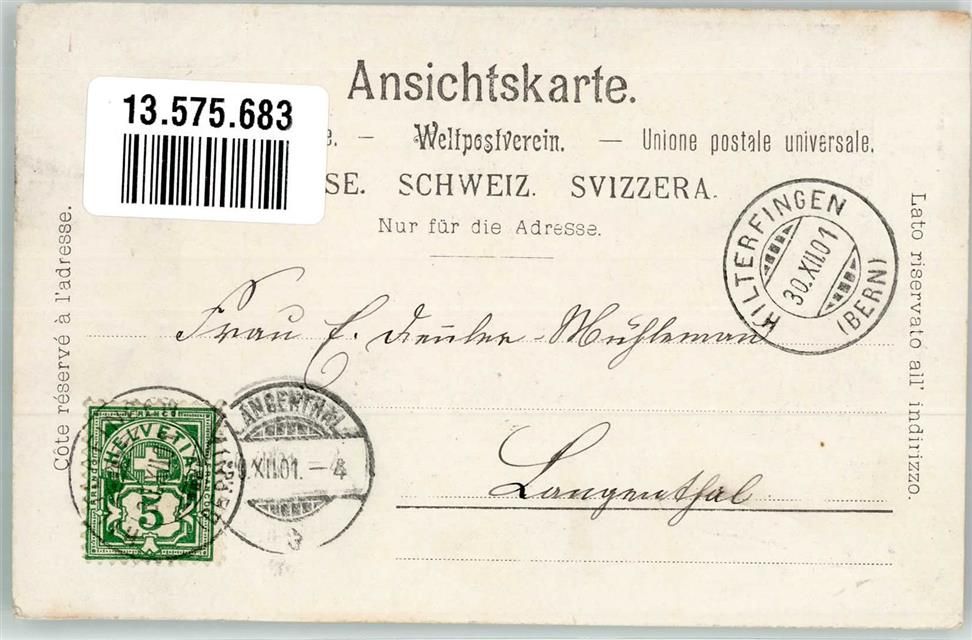 Ansichtskarte.
13.575.683
e. — Weltpostverein. — Unione postale universale.
SE. SCHWEIZ. SVIZZERA.
Nur für die Adresse.
Côte réservé à l'adresse.
Lato riservato all' indirizzo.
HILTERFINGEN
30.XII.01
(BERN)
Frau E. Mühleman
LANGENTHAL
XII.01. – 4
FRANCO
HELVETIA
5
Langenthal